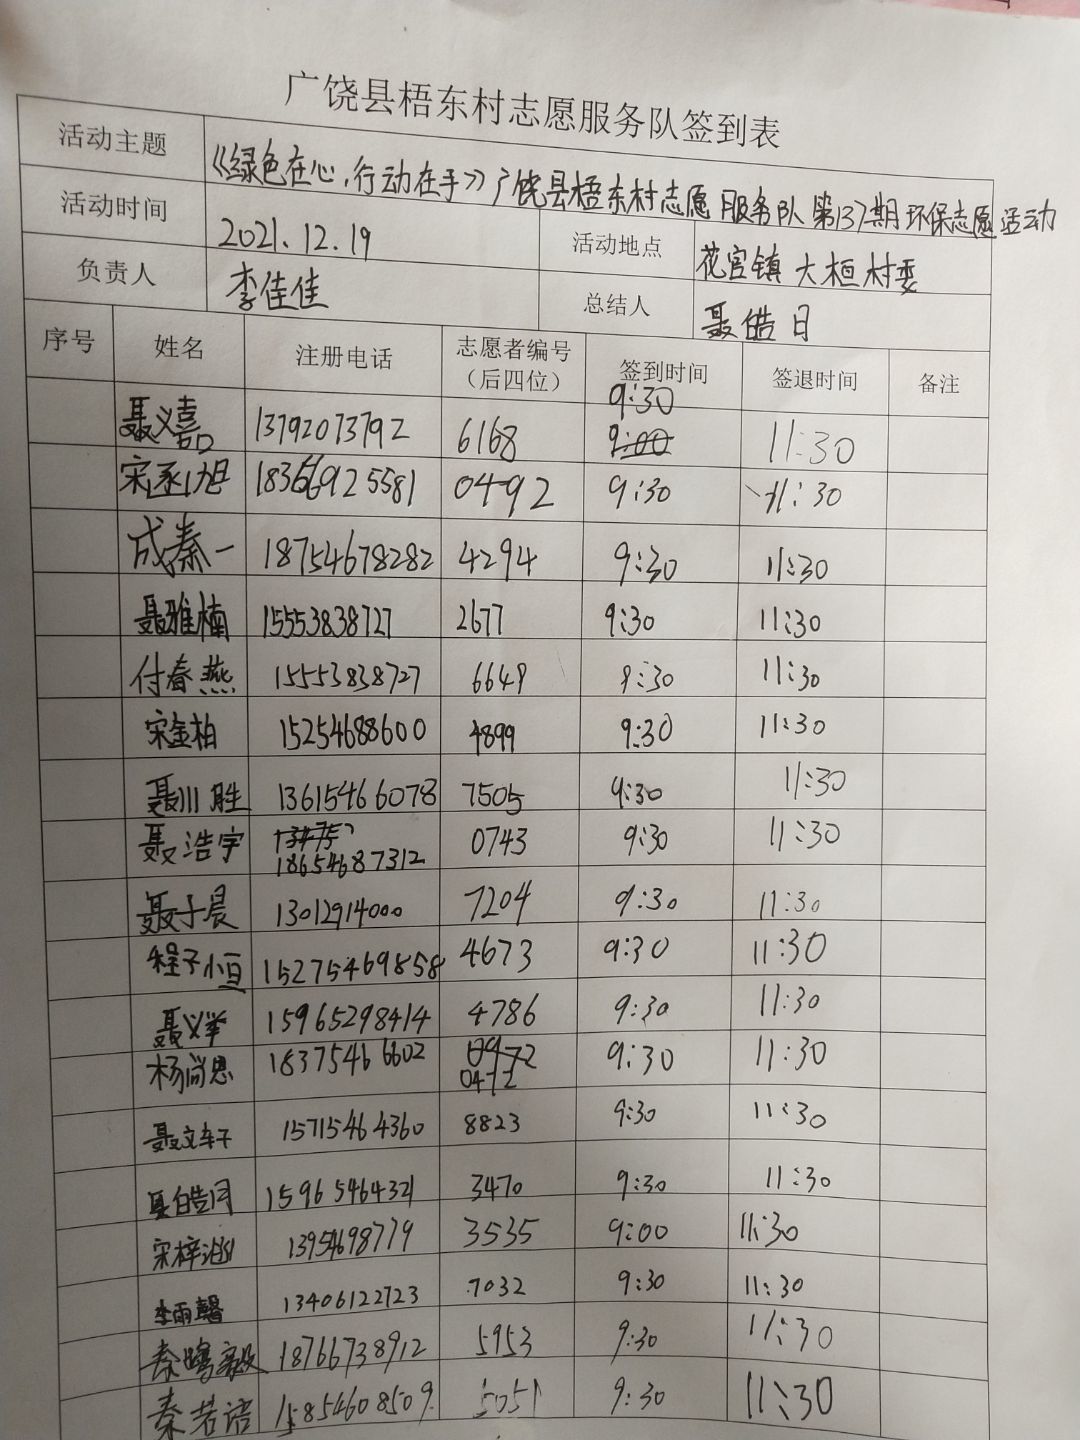 广饶县梧东村志愿服务队签到表
活动主题 《绿色在心,行动在手》广饶县梧东村志愿服务队第137期环保志愿活动
活动时间 2021.12.19 活动地点 花官镇大桓村委
负责人 李佳佳 总结人 聂皓日
序号 姓名 注册电话 志愿者编号（后四位） 签到时间 签退时间 备注
聂义嘉 13792073792 6168 9:30 11:30
宋丞旭 18366925581 0492 9:30 11:30
成秦一 18754678282 4294 9:30 11:30
聂雅楠 15553838727 2677 9:30 11:30
付春燕 15553838727 6649 9:30 11:30
宋金柏 15254688600 4899 9:30 11:30
聂川胜 13615466078 7505 9:30 11:30
聂浩宇 18654687312 0743 9:30 11:30
聂子晨 13012914000 7204 9:30 11:30
程子小亘 15275469858 4673 9:30 11:30
聂义举 15965298414 4786 9:30 11:30
杨尚恩 18375466602 9:30 11:30
聂文轩 15715464360 8823 9:30 11:30
聂皓月 15965464321 3470 9:30 11:30
宋梓 13954698779 3535 9:00 11:30
李雨馨 13406122723 7032 9:30 11:30
秦鹏毅 18766738912 5953 9:30 11:30
秦若语 15854608509 5051 9:30 11:30